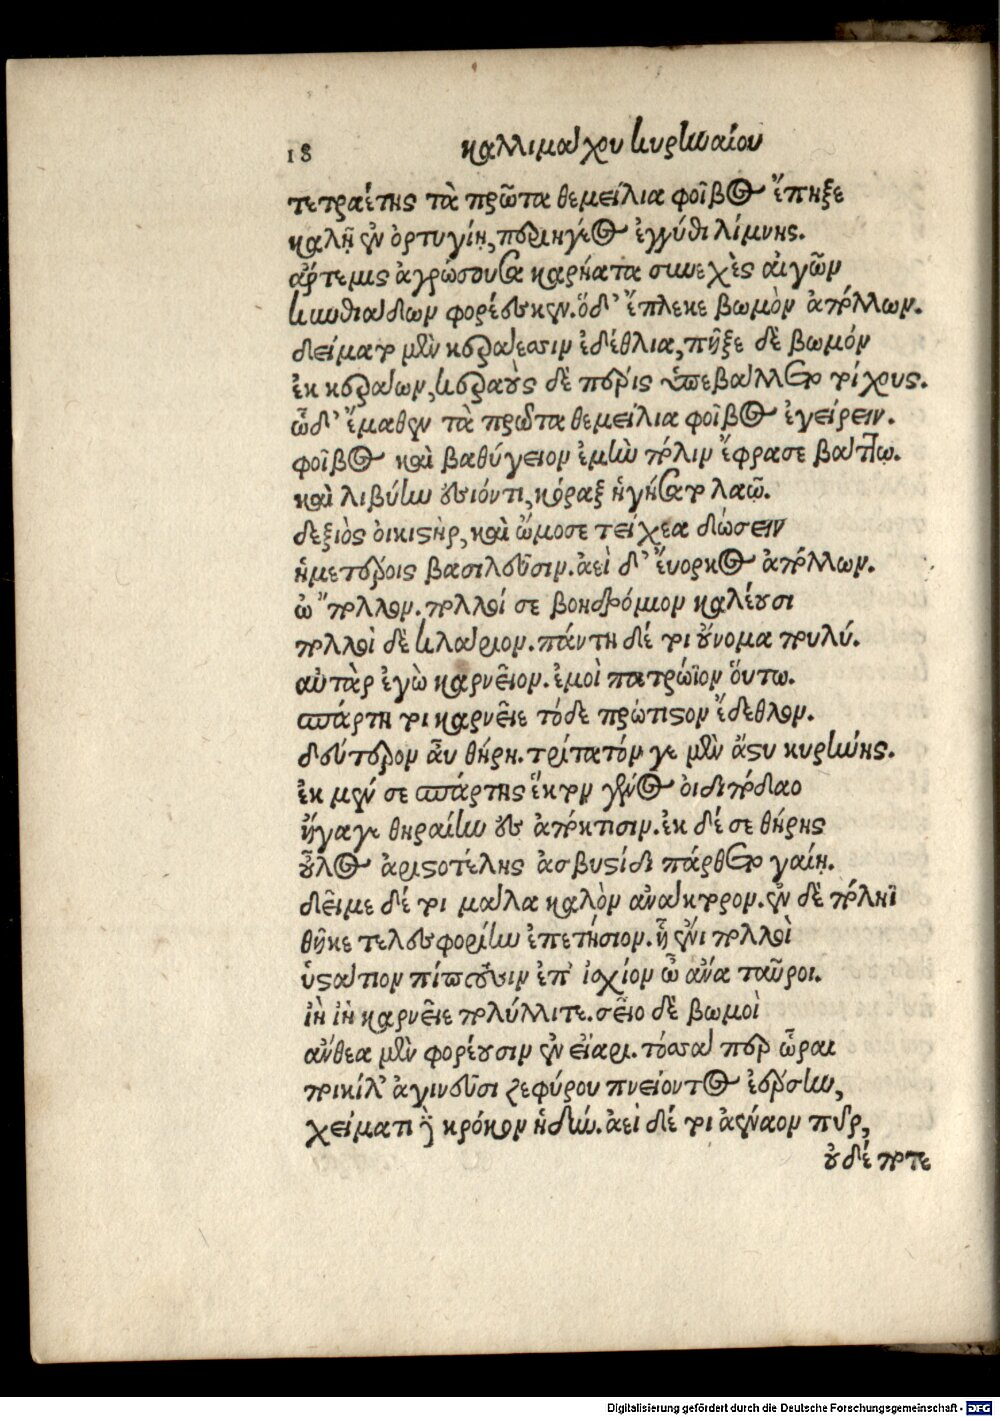 18 καλλιμάχου κυρηναίου
τετραέτης τὰ πρῶτα θεμείλια φοῖβος ἔπηξε
καλῇ ἐν ὀρτυγίῃ, περιηγέος ἐγγύθι λίμνης.
ἄρτεμις ἀγρώσσουσα καρήατα συνεχὲς αἰγῶν
κυνθιάδων φορέεσκεν. ὅδ' ἔπλεκε βωμὸν ἀπόλλων.
δείματο μὲν κεράεσσιν ἐδέθλια, πῆξε δὲ βωμόν
ἐκ κεράων, κεραοὺς δὲ πέριξ ὑπεβάλλετο τοίχους.
ὧδ' ἔμαθεν τὰ πρῶτα θεμείλια φοῖβος ἐγείρειν.
φοῖβος καὶ βαθύγειον ἐμὴν πόλιν ἔφρασε βάττῳ.
καὶ λιβύην ἐσιόντι, κόραξ ἡγήσατο λαῶ.
δεξιὸς οἰκιστὴρ, καὶ ὤμοσε τείχεα δώσειν
ἡμετέροις βασιλεῦσιν. ἀεὶ δ' ἔυορκος ἀπόλλων.
ὦ "πολλον. πολλοί σε βοηδρόμιον καλέουσι
πολλοὶ δὲ κλάριον. πάντη δέ τοι οὔνομα πουλύ.
αὐτὰρ ἐγὼ καρνεῖον. ἐμοὶ πατρώϊον ὅυτω.
σπάρτη τοι καρνεῖε τόδε πρώτιστον ἔδεθλον.
δεύτερον αὖ θήρη. τρίτατόν γε μὲν ἄστυ κυρήνης.
ἐκ μέν σε σπάρτης ἕκτον γένος οἰδιπόδαο
ἤγαγε θηραίην ἐς ἀπόκτισιν. ἐκ δέ σε θήρης
οὖλος ἀριστοτέλης ἀσβυστίδι πάρθετο γαίῃ.
δεῖμε δέ τοι μάλα καλὸν ἀνάκτορον. ἐν δὲ πόληϊ
θῆκε τελεσφορίην ἐπετήσιον. ᾗ ἔνι πολλοὶ
ὑστάτιον πίπτουσιν ἐπ' ἰσχίον ὦ ἄνα ταῦροι.
ἰὴ ἰὴ καρνεῖε πολύλλιτε. σεῖο δὲ βωμοὶ
ἄνθεα μὲν φορέουσιν ἐν εἴαρι. τόσσά περ ὧραι
ποικίλ' ἀγινεῦσι ζεφύρου πνείοντος ἐέρσην,
χείματι δὲ κρόκον ἡδύν. ἀεὶ δέ τοι ἀέναον πῦρ,
οὐδέ ποτε
Digitalisierung gefördert durch die Deutsche Forschungsgemeinschaft - DFG